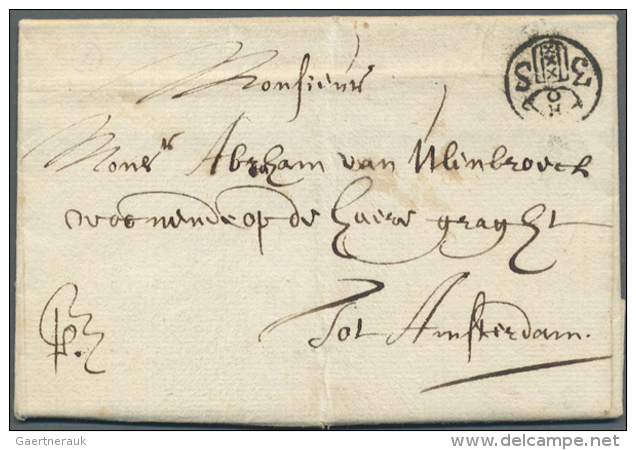 Monsieur
Monsr Abraham van Ulenbroeck
woonende op de haere graght
Tot Amsterdam.
Gaertnerauk
www.delcampe.net